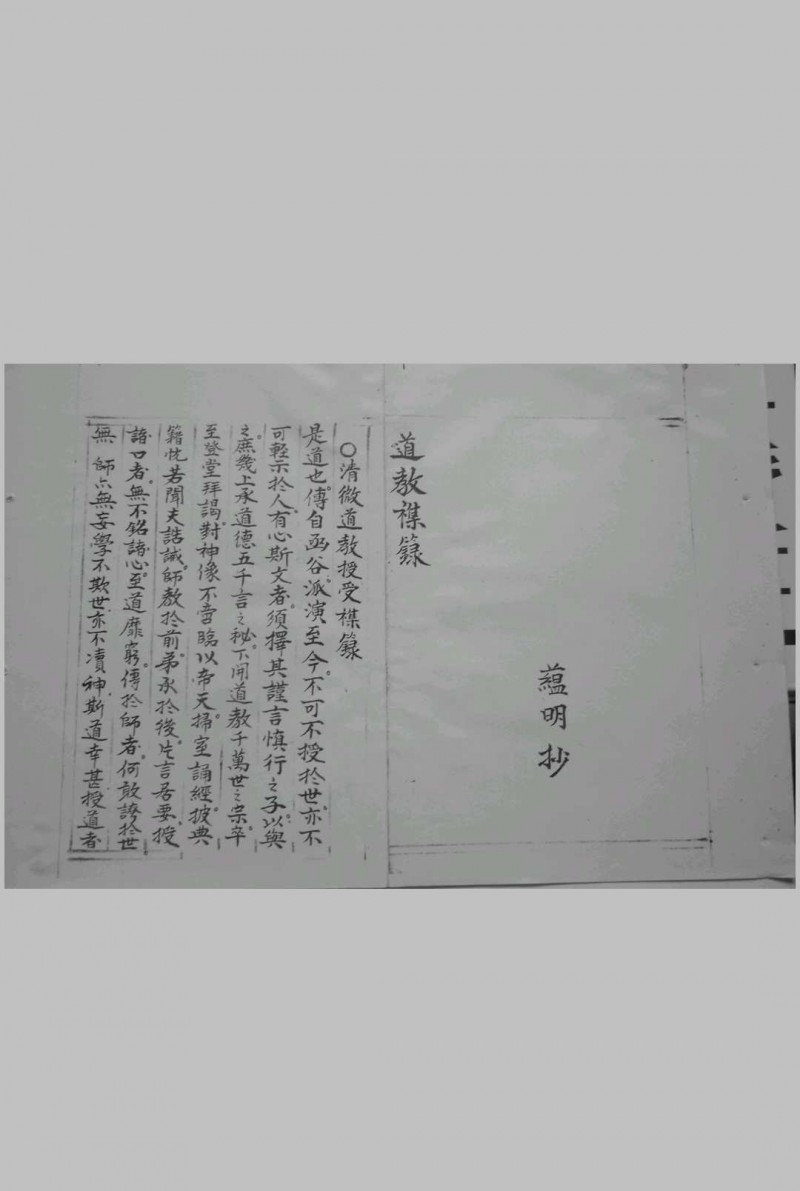 道教禖籙
蘊明抄
○清微道教授受禖籙
是道也。傳自函谷。派演至今。不可不授於世。亦不
可輕示於人。有心斯文者。須擇其謹言慎行之子。以與
之。庶幾上承道德五千言之秘。下開道教千萬世之宗。卒
至登堂拜謁。對神像不啻臨以帝天。掃室誦經。披典
籍恍若聞夫誥誡。師教於前。弟承於後。片言居要。授
諸口者。無不銘諸心。至道靡窮。傳於師者。何敢誇於世
無師亦無妄學。不欺世亦不凟神。斯道幸甚。授道者